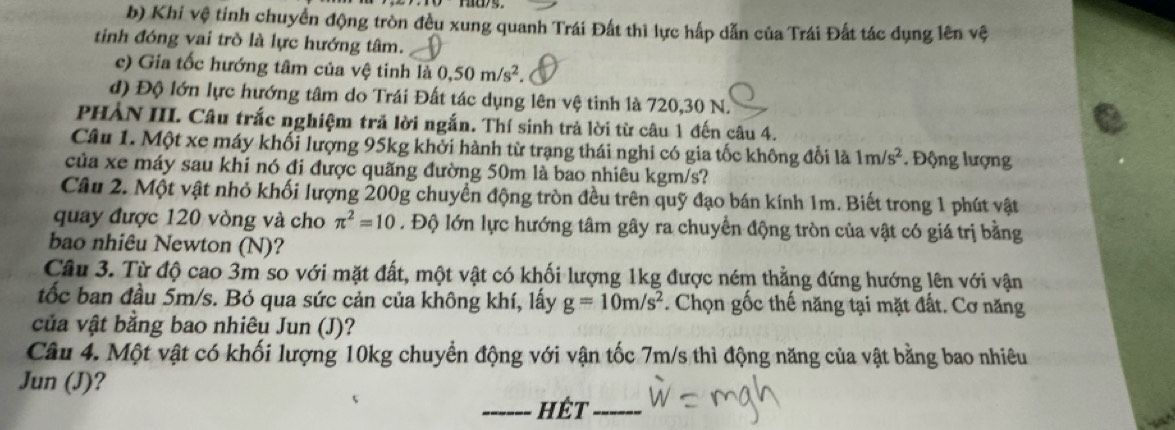 rad/s.
b) Khi vệ tinh chuyển động tròn đều xung quanh Trái Đất thì lực hấp dẫn của Trái Đất tác dụng lên vệ
tinh đóng vai trò là lực hướng tâm. Đ
c) Gia tốc hướng tâm của vệ tinh là 0,50 m/s². Đ
d) Độ lớn lực hướng tâm do Trái Đất tác dụng lên vệ tinh là 720,30 N.
PHẦN III. Câu trắc nghiệm trả lời ngắn. Thí sinh trả lời từ câu 1 đến câu 4.
Câu 1. Một xe máy khối lượng 95kg khởi hành từ trạng thái nghỉ có gia tốc không đổi là 1m/s². Động lượng
của xe máy sau khi nó đi được quãng đường 50m là bao nhiêu kgm/s?
Câu 2. Một vật nhỏ khối lượng 200g chuyển động tròn đều trên quỹ đạo bán kính 1m. Biết trong 1 phút vật
quay được 120 vòng và cho π² =10 . Độ lớn lực hướng tâm gây ra chuyển động tròn của vật có giá trị bằng
bao nhiêu Newton (N)?
Câu 3. Từ độ cao 3m so với mặt đất, một vật có khối lượng 1kg được ném thẳng đứng hướng lên với vận
tốc ban đầu 5m/s. Bỏ qua sức cản của không khí, lấy g = 10m/s². Chọn gốc thế năng tại mặt đất. Cơ năng
của vật bằng bao nhiêu Jun (J)?
Câu 4. Một vật có khối lượng 10kg chuyển động với vận tốc 7m/s thì động năng của vật bằng bao nhiêu
Jun (J)?
------ HẾT ------ W = mgh